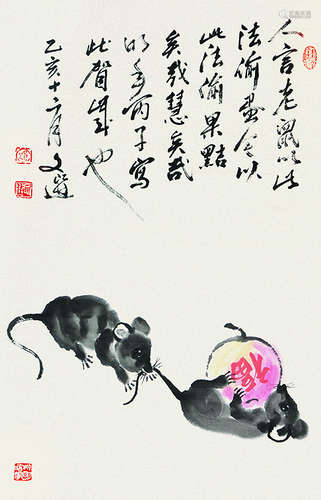 人言老鼠以此
法偷蛋今以
此法偷果黠
矣哉慧矣哉
明年丙子写
此贺岁也
乙亥十二月文选
福